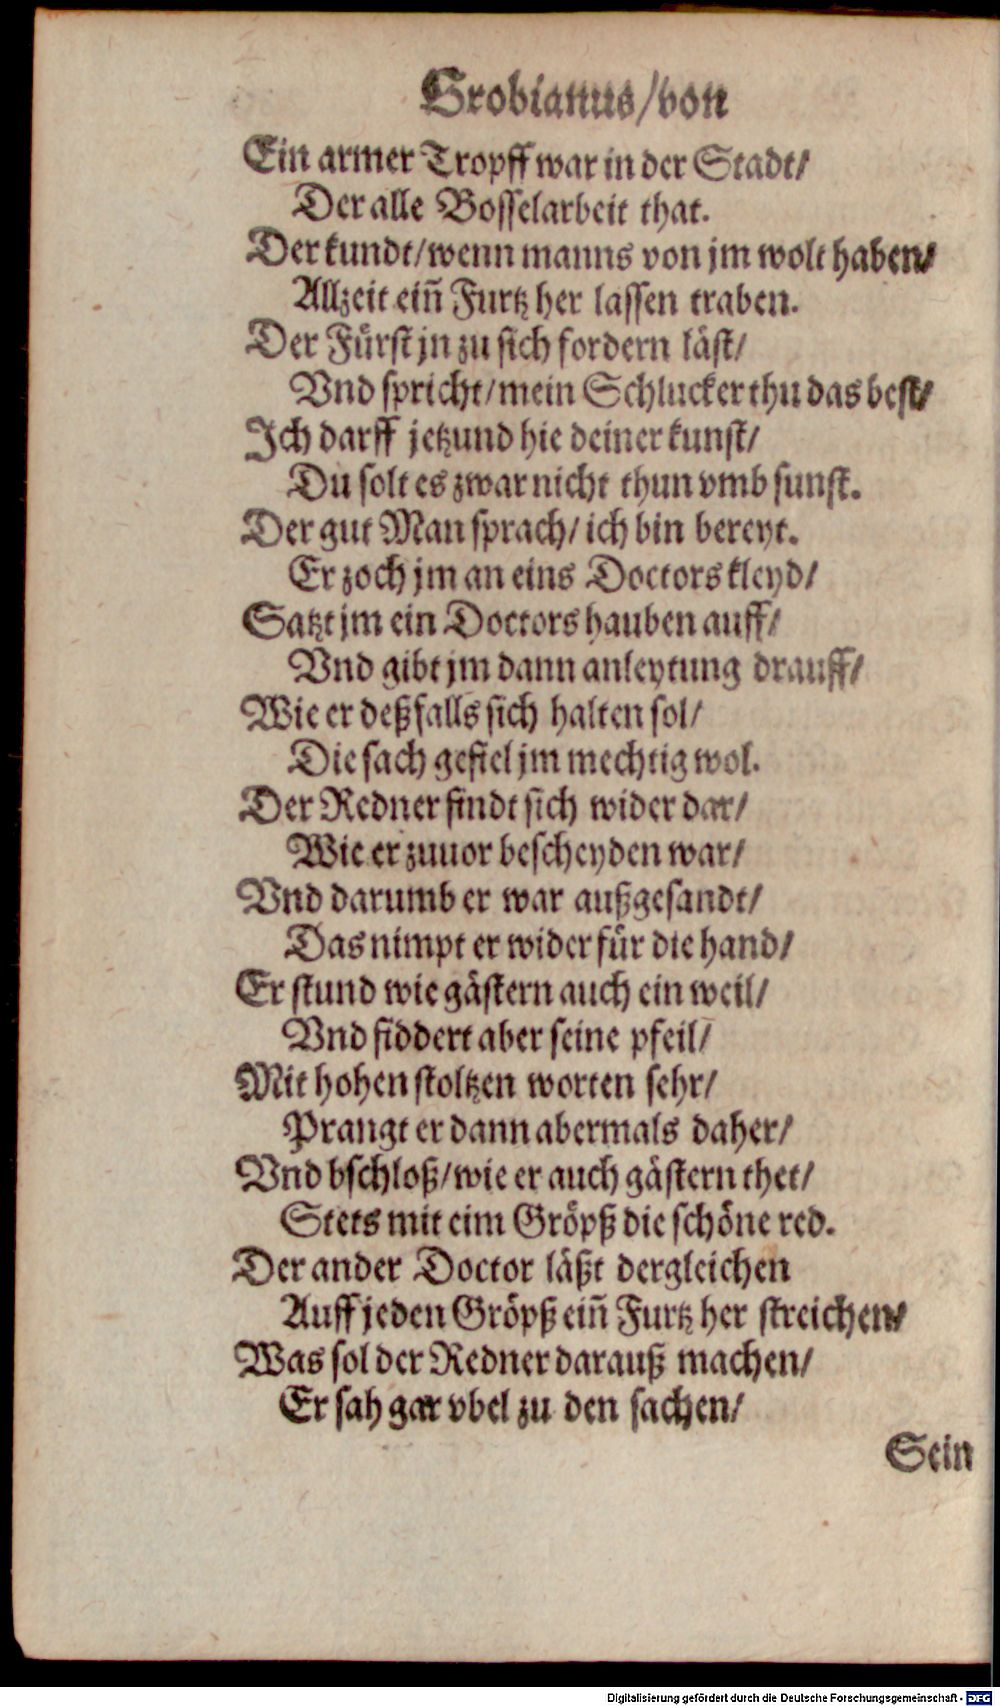 Grobianus/von
Ein armer Tropff war in der Stadt/
Der alle Bosselarbeit that.
Der kundt/wenn manns von jm wolt haben/
Allzeit ein̄ Furtz her lassen traben.
Der Fürst jn zu sich fordern läst/
Vnd spricht/mein Schlucker thu das best/
Ich darff jetzund hie deiner kunst/
Du solt es zwar nicht thun vmb sunst.
Der gut Man sprach/ich bin bereyt.
Er zoch jm an eins Doctors kleyd/
Satzt jm ein Doctors hauben auff/
Vnd gibt jm dann anleytung drauff/
Wie er deßfalls sich halten sol/
Die sach gefiel jm mechtig wol.
Der Redner findt sich wider dar/
Wie er zuuor bescheyden war/
Vnd darumb er war außgesandt/
Das nimpt er wider für die hand/
Er stund wie gästern auch ein weil/
Vnd fiddert aber seine pfeil/
Mit hohen stoltzen worten sehr/
Prangt er dann abermals daher/
Vnd bschloß/wie er auch gästern thet/
Stets mit eim Gröpß die schöne red.
Der ander Doctor läßt dergleichen
Auff jeden Gröpß ein̄ Furtz her streichen/
Was sol der Redner darauß machen/
Er sah gar vbel zu den sachen/
Sein
Digitalisierung gefördert durch die Deutsche Forschungsgemeinschaft - DFG